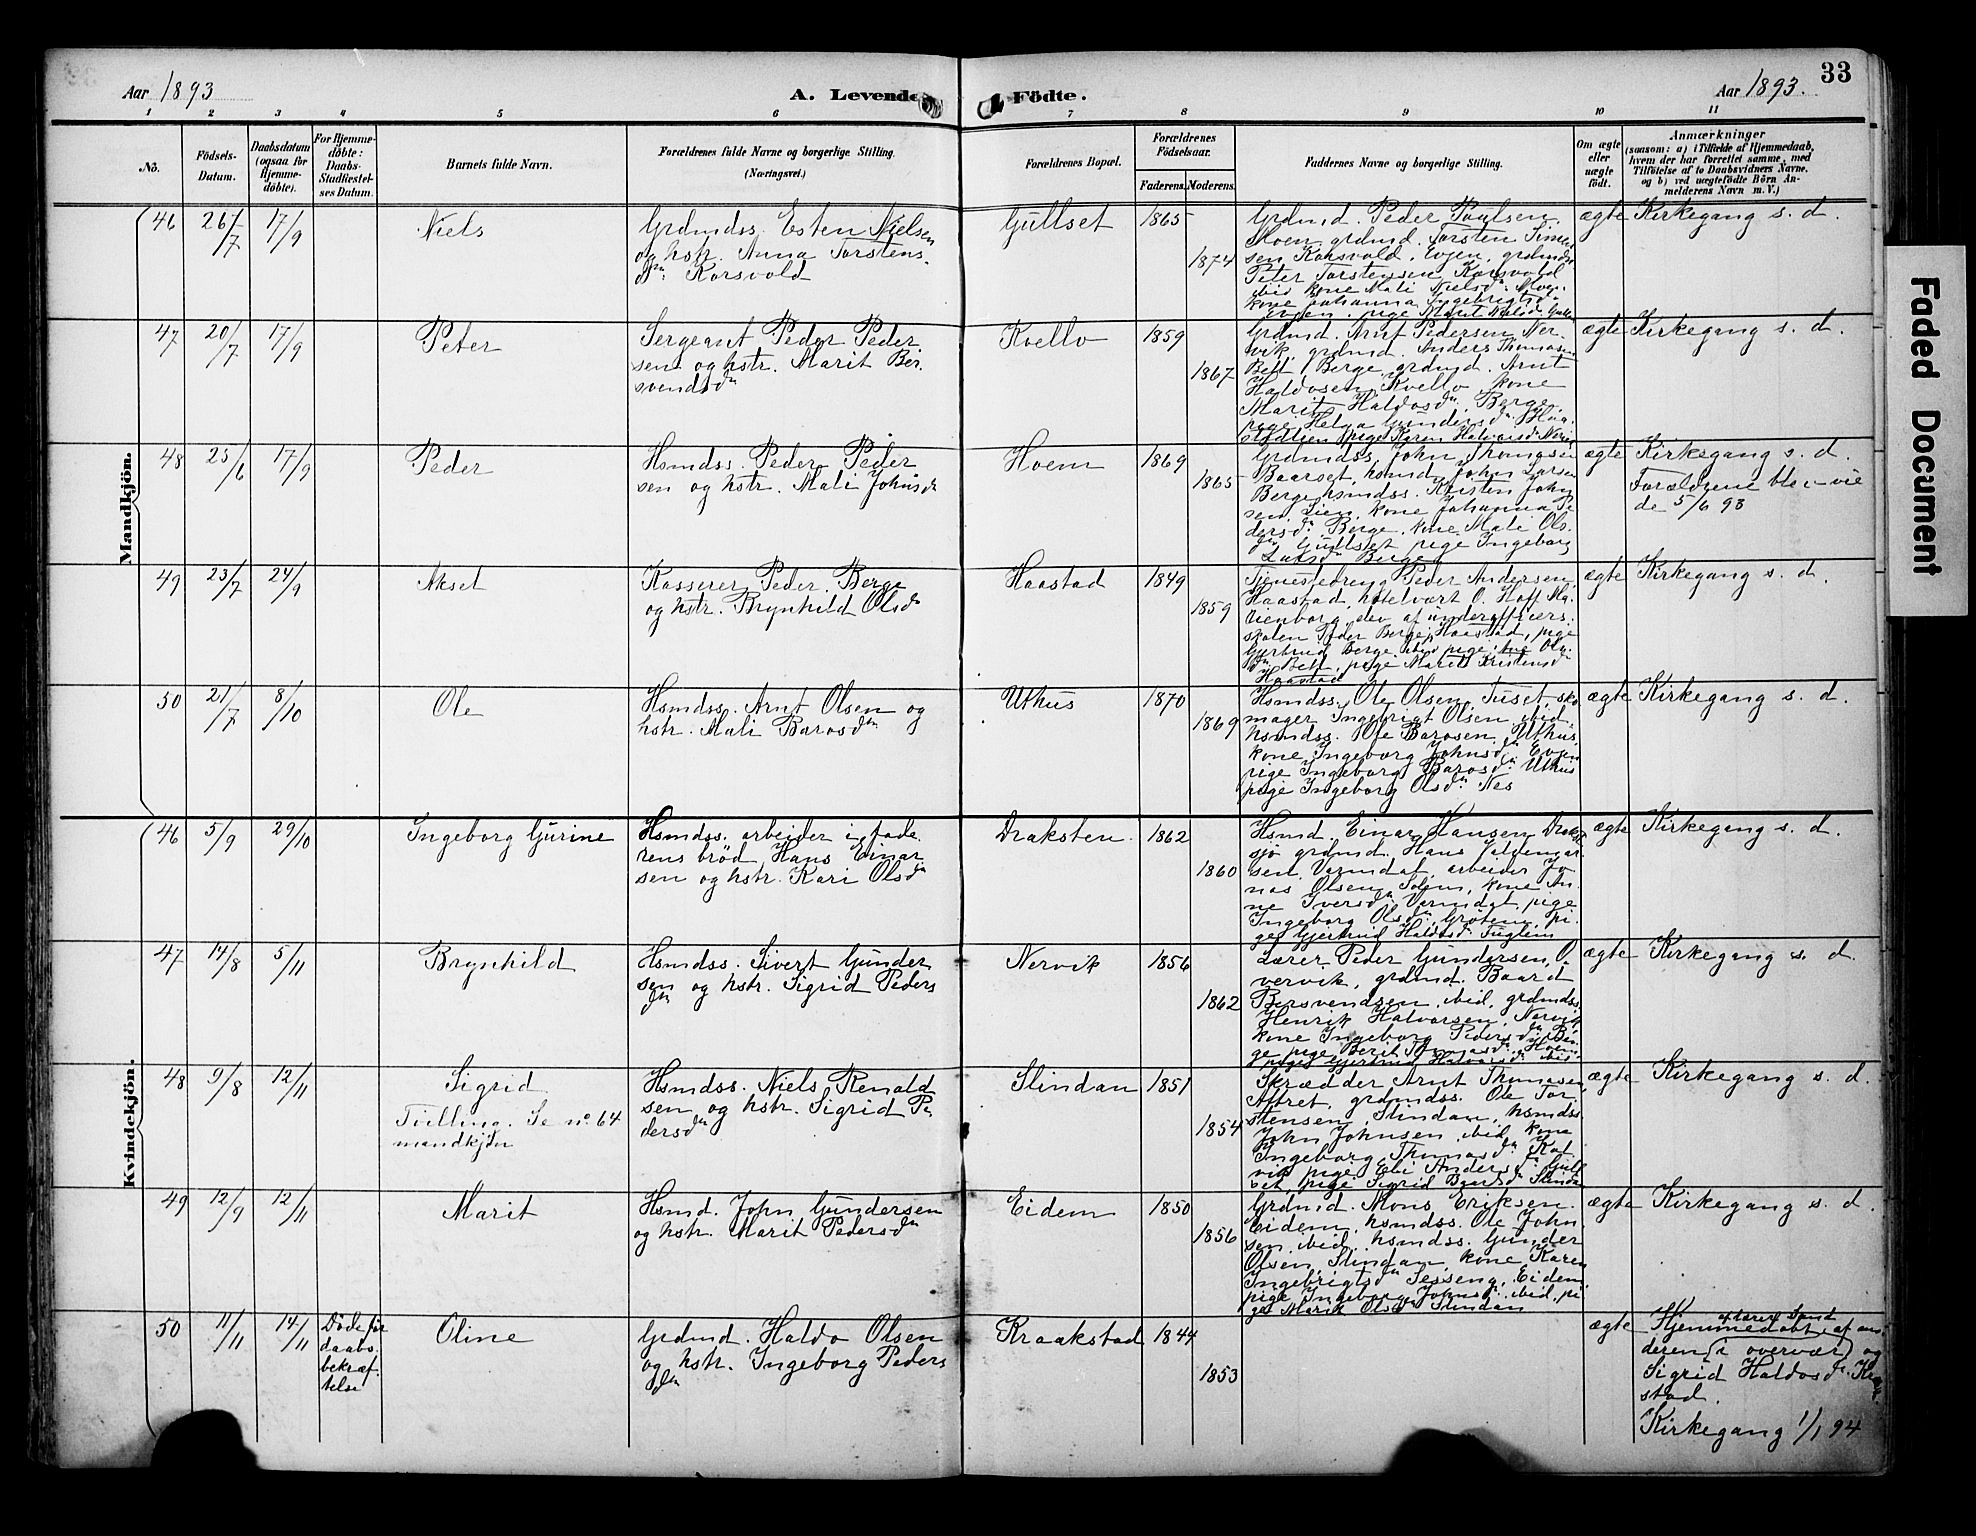 Aar 1893
A. Levende Födte.
Aar 1893.
33
1 2 3 4 5 6 7 8 9 10 11
No.
Födsels-
Datum.
Daabsdatum
(ogsaa for
Hjemme-
döbte).
For Hjemme-
döbte:
Daabs-
Stadfæstel-
ses Datum.
Barnets fulde Navn.
Forældrenes fulde Navne og borgerlige Stilling.
(Næringsvei.)
Forældrenes Bopæl.
Forældrenes
Födselsaar.
Faderens. Moderens.
Faddernes Navne og borgerlige Stilling.
Om ægte
eller
uægte
födt.
Anmærkninger
(saasom: a) i Tilfælde af Hjemmedaab,
hvem der har forrettet samme, med
Tilföielse af to Daabsvidners Navne,
og b) ved uægtefödte Börn An-
melderens Navn m. V.)
Mandkjön.
46 26/7 17/9 Niels
Grdmdss. Esten Nielsen
og hstr. Anna Torstens
dtr Korsvold
Gullset 1865
1874
Grdmd. Peder Poulsen
Moen, grdmd. Torsten Simen
sen Korsvold, Evjen, grdmds
Peter Torstensen Korsvold
ibid kone Mali Nielsdtr Moen
kone Johanna Ingebrigtsdtr
Evjen, pige Marit Nielsdtr Gulls
ægte Kirkegang s. d.
47 20/7 17/9 Peter
Sergeant Peder Peder
sen og hstr. Marit Ber
svendsdtr
Kvello 1859
1867
Grdmd. Arnt Pedersen Ner
vik, grdmd. Anders Thomasen
Bett, Berge grdmd. Arnt
Haldosen Kvello, kone
Marit Haldosdtr, Berge
pige Helga Gundersdtr
pige Karen
ægte Kirkegang s. d.
48 25/6 17/9 Peder
Hsmdss. Peder Peder
sen og hstr. Mali Johnsdtr
Hoem 1869
1865
Grdmdss. John Thomasen
Baarset, hsmd. John Larsen
Berge hsmdss. Kristen John
sen, Lien, kone Johanna Pe
dersdtr Berge, kone Mali Ols
dtr Gullset pige Ingeborg
Larsdtr Berge
ægte Kirkegang s. d.
Forældrene blev vie
de 5/6 93
49 23/7 24/9 Aksel
Kasserer Peder Berge
og hstr. Brynhild Olsdtr
Haastad 1849
1859
Tjenestedreng Peder Andersen,
Haastad, hotelvært O. Hoff Ma
rienborg, elev af underofficers
skolen Peder Berge, Haastad, pige
Gjertrud Berge ibid pige Ols
dtr Bett, pige Marit Kristensdtr
Haastad
ægte Kirkegang s. d.
50 21/7 8/10 Ole
Hsmdss. Arnt Olsen og
hstr. Mali Barosdtr
Uthus 1870
1869
Hsmdss. Ole Olsen Tuset, sko
mager Ingebrigt Olsen ibid
hsmdss. Ole Barosen, Uthus,
kone Ingeborg Johnsdtr Evjen
pige Ingeborg Barosdtr Uthus
pige Ingeborg Olsdtr Nes
ægte Kirkegang s. d.
Kvindekjön.
46 5/9 29/10 Ingeborg Gurine
Hsmdss. arbeider i fade
rens bröd, Hans Einar
sen og hstr. Kari Olsdtr
Draksten 1862
1860
Hsmd. Einar Hansen Drak
sjö grdmd. Hans Valdemar
sen, Varmdal, arbeider Jo
nas Olsen Solem, kone An
ne Iversdtr Varmdal, pige
Ingeborg Olsdtr Gröten pi
ge Gjertrud Haldosdtr Fuglem
ægte Kirkegang s. d.
47 14/8 5/11 Brynhild
Hsmdss. Sivert Gunder
sen og hstr. Sigrid Peders
dtr
Nervik 1856
1862
Lærer Peder Gundersen, O
vervik, grdmd. Baard
Bersvendsen, ibid, grdmdss
Henrik Halvorsen, Nervik
kone Ingeborg Pedersdtr Ber
ge pige Berit Hoem
pige Gjertrud Halvorsdtr ibid
ægte Kirkegang s. d.
48 9/8 12/11 Sigrid
Tvilling. Se no 64
mandkjön
Hsmdss. Niels Renald
sen og hstr. Sigrid Pe
dersdtr
Slindan 1851
1854
Skrædder Arnt Thomasen
Aftret, grdmdss. Ole Tor
stensen, Slindan, hsmdss
John Johnsen ibid, kone
Ingeborg Thomasdtr Kal
vik, pige Eli Andersdtr Gull
set, pige Sigrid Slindan
ægte Kirkegang s. d.
49 12/9 12/11 Marit
Hsmd. John Gundersen
og hstr. Marit Pedersdtr
Eidem 1850
1856
Grdmd. Mons Eriksen
Eidem, hsmdss. Ole John
sen ibid, hsmdss. Gunder
Olsen, Slindan, kone Karen
Ingebrigtsdtr Sesseng, Eidem
pige Ingeborg Johnsdtr ibid, pi
ge Marit Olsdtr Slindan
ægte Kirkegang s. d.
50 11/11 14/11
Döde för
daabs
bekræf
telse
Oline
Grdmd. Haldo Olsen
og hstr. Ingeborg Peders
dtr
Kraakstad 1844
1853
ægte
af lærer Sand
Hjemmedöbt (af an
deren i overvær) og
Sigrid Haldosdtr Kra
stad.
Kirkegang 1/1 94
Faded Document